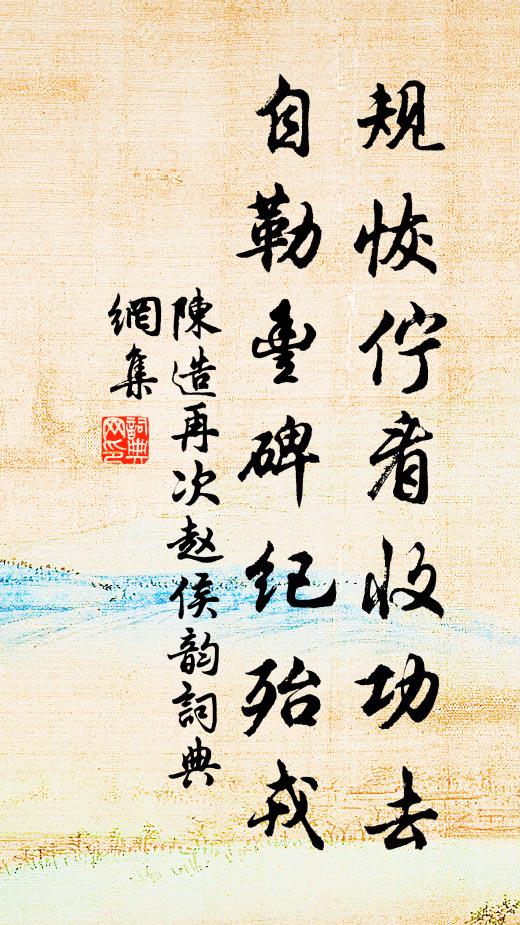 規恢佇看收功去
自勒豊碑纪殆戎
陳造再次赵侯韵詞典
網集
詞典
网印